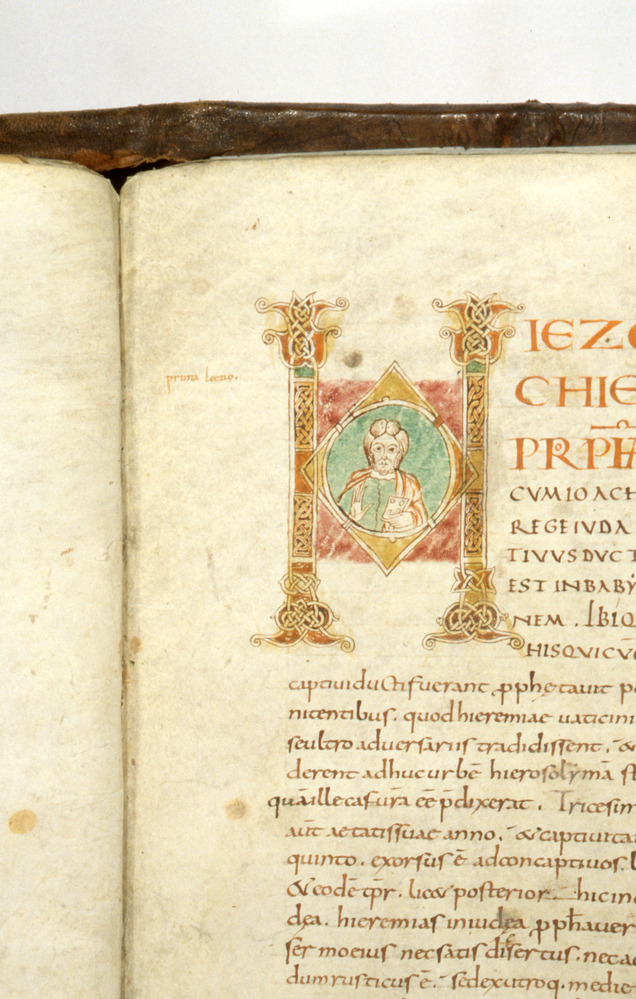 prima lectio.
H
IEZE
CHIE
PRPHA
CVM IOACH
REGE IUDA
TIVUS DVCT
EST IN BABY
NEM. IBIQ
HISQVICVQ
captiui ducti fuerant, pphetauit p
nitentibus. quod hieremiae uaticini
se ultro aduersariis tradidissent, &
derent adhuc urbē hierosolymā st
quā ille casurā eē p̄dixerat. Tricesim
aūt aetatis suae anno, & captiuita
quinto. exorsus ē ad concaptiuos. 
& codē tpr. licet posterior. hic in
dea. hieremias in iudea pphauer
sermo eius nec satis disertus. nec a
dum rusticus ē. sed ex utroq. medie